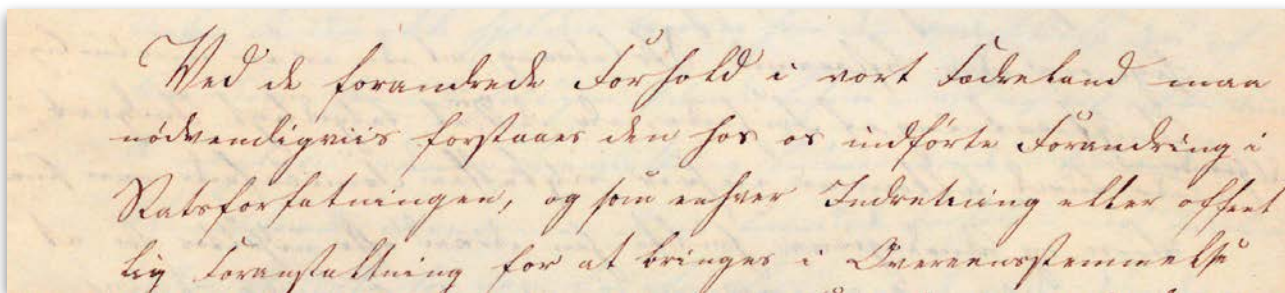 Ved de forandrede Forhold i vort Fædreland maa
nødvendigviis forstaaes den hos os indførte Forandring i
Statsforfatningen, og som enhver Indretning eller offent
lig Foranstaltning for at bringes i Overeensstemmelse